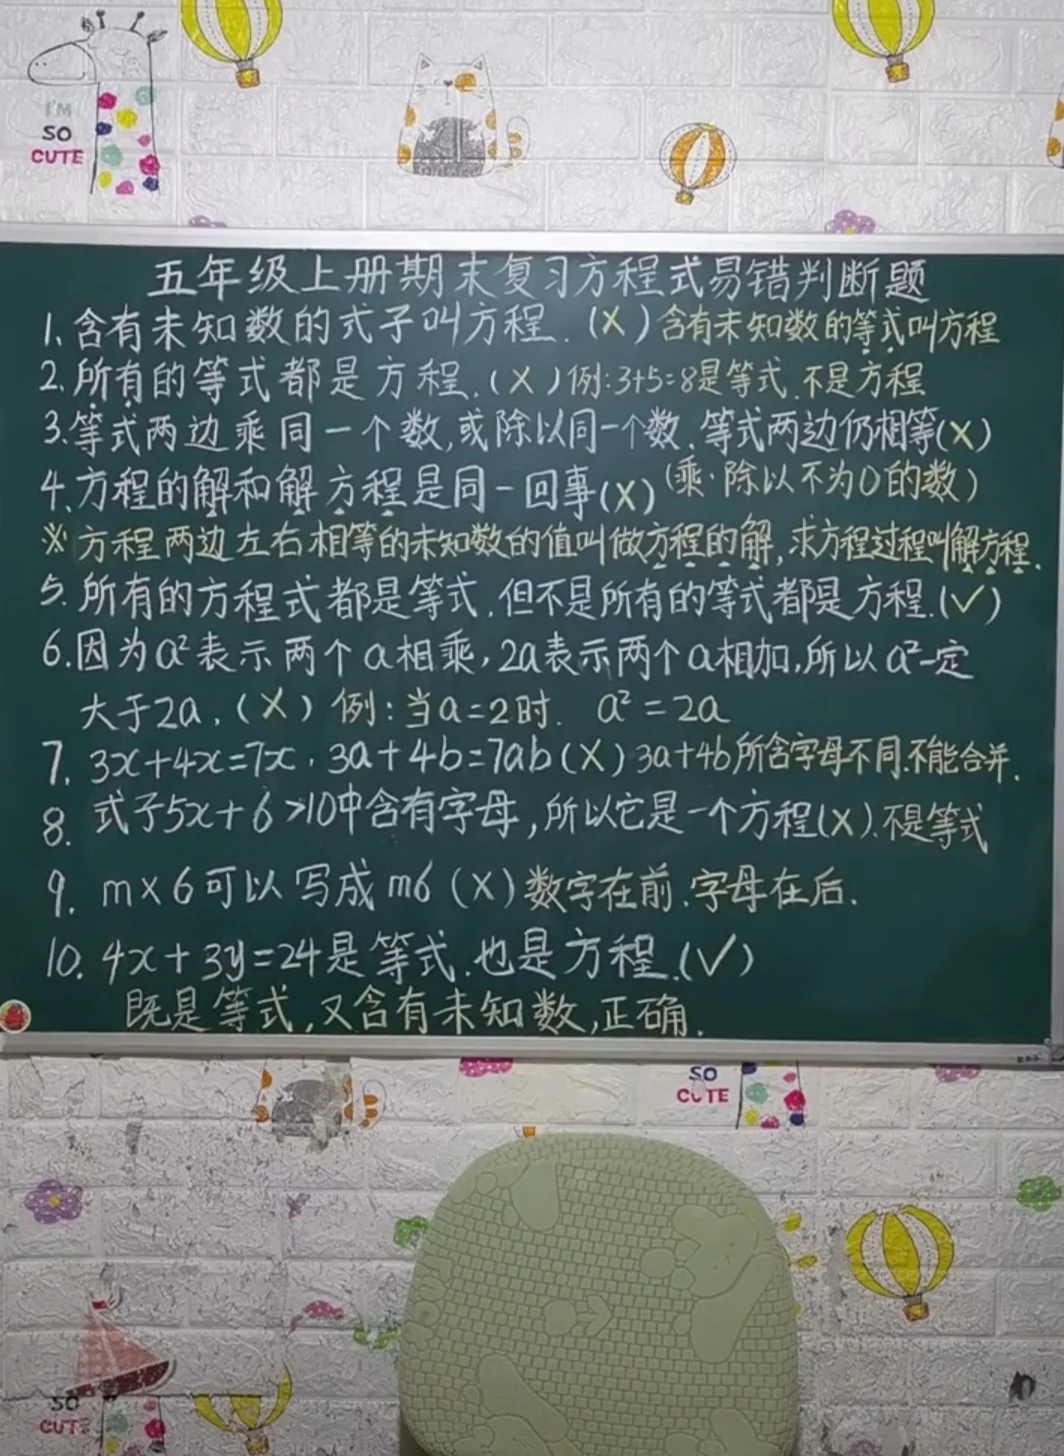 I'M
SO
CUTE
五年级上册期末复习方程式易错判断题
1、含有未知数的式子叫方程.(X)含有未知数的等式叫方程
2、所有的等式都是方程.(X)例:3+5=8是等式.不是方程
3.等式两边乘同一个数,或除以同一个数.等式两边仍相等(X)
4.方程的解和解方程是同一回事(X)(乘·除以不为0的数)
※方程两边左右相等的未知数的值叫做方程的解,求方程过程叫解方程.
5.所有的方程式都是等式.但不是所有的等式都是方程.(✓)
6.因为a²表示两个a相乘,2a表示两个a相加,所以a²一定
大于2a.(X)例:当a=2时. a²=2a
7. 3x+4x=7x.3a+4b=7ab(X)3a+4b所含字母不同.不能合并.
8. 式子5x+6>10中含有字母,所以它是一个方程(X).不是等式
9. m×6可以写成m6(X)数字在前.字母在后.
10. 4x+3y=24是等式.也是方程.(✓)
既是等式,又含有未知数,正确.
SO
CUTE
SO
CUTE